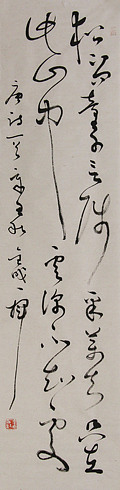 松下問童子言師采藥去只在
此山中雲深不知處
唐詩一首